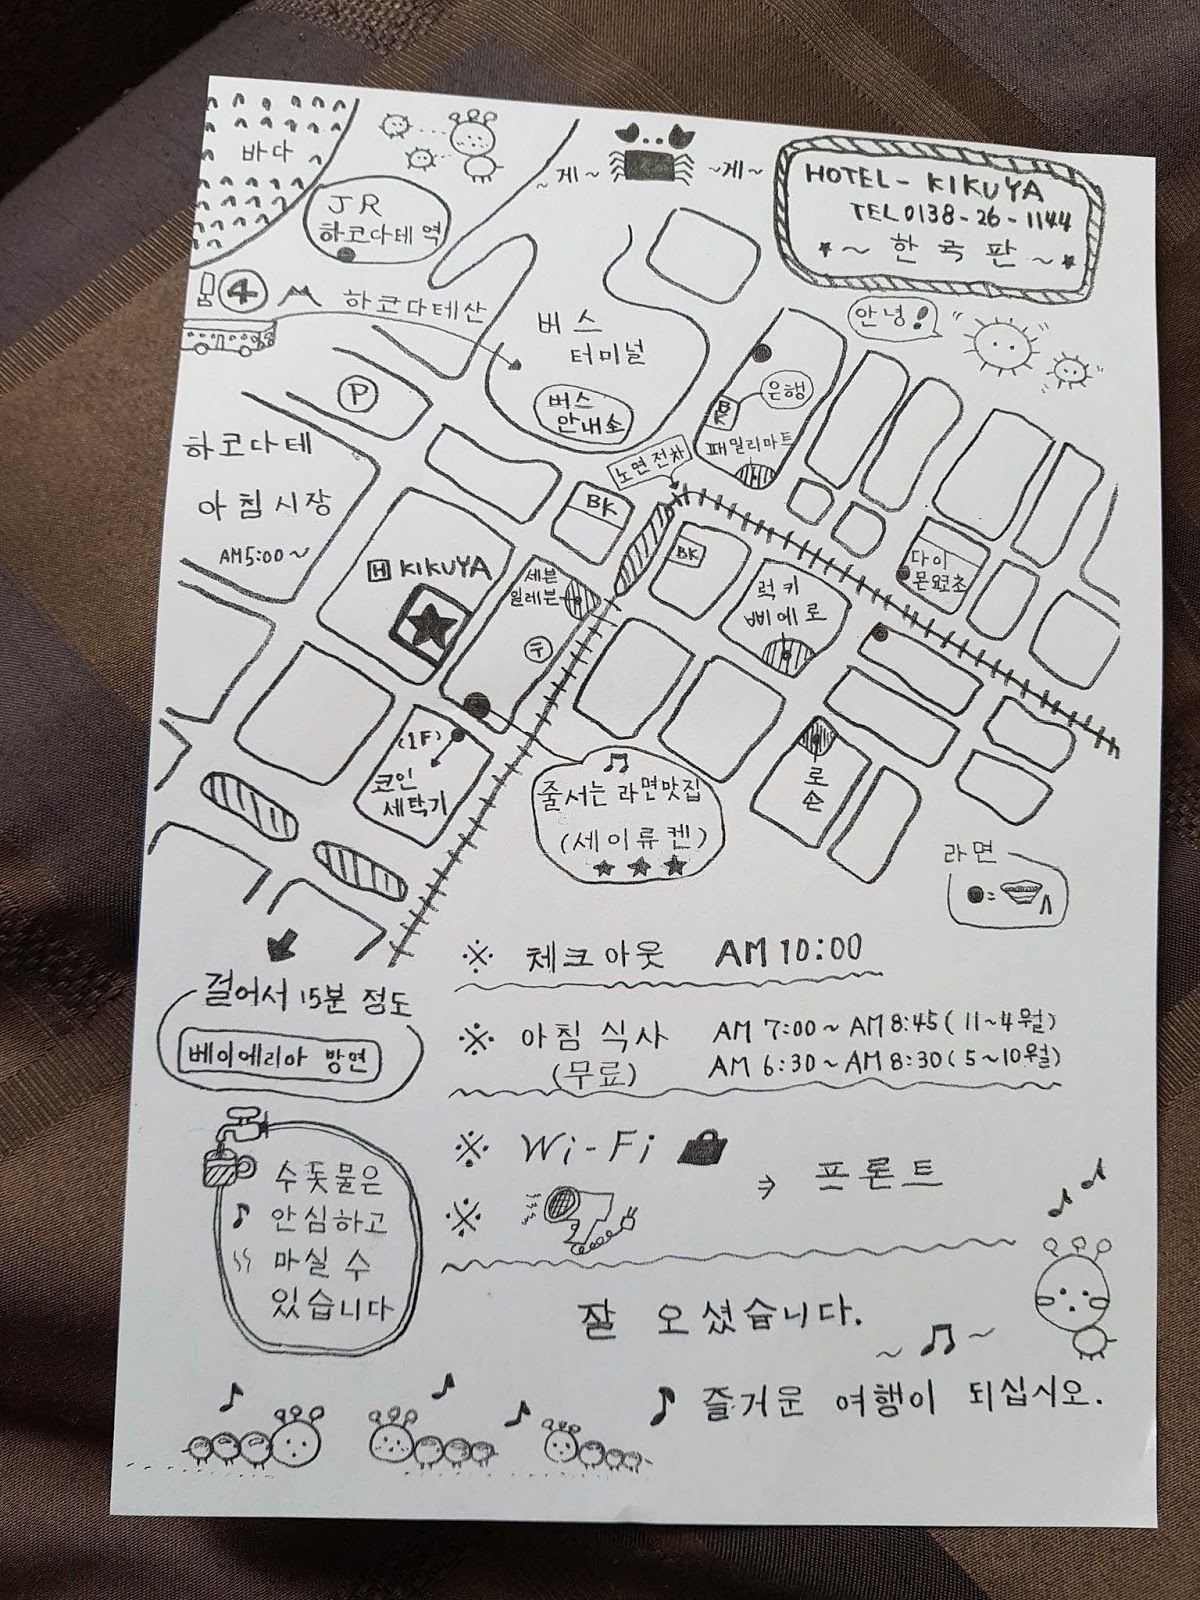 바다
~게~
~게~
HOTEL - KIKUYA
TEL 0138-26-1144
★~한국판~★
JR
하코다테역
안녕!
4
하코다테산
버스
터미널
버스
안내소
은행
BK
패밀리마트
P
노면전차
하코다테
아침시장
AM5:00~
BK
BK
H KIKUYA
세븐
일레븐
〒
럭키
삐에로
다이
몬요코쵸
(1F)
코인
세탁기
줄서는 라면맛집
(세이류켄)
★★★
로손
라면
●=
※ 체크아웃 AM 10:00
걸어서 15분 정도
베이에리아 방면
※ 아침 식사 AM 7:00~AM 8:45(11~4월)
(무료) AM 6:30~AM 8:30(5~10월)
※ Wi-Fi
※
⇒ 프론트
수돗물은
안심하고
마실 수
있습니다
잘 오셨습니다.
~♫~
♪ 즐거운 여행이 되십시오.